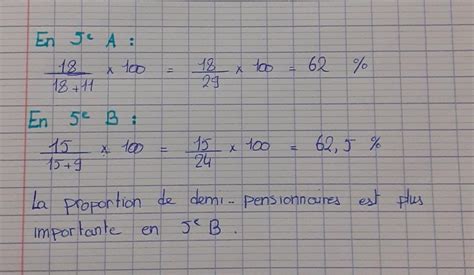 En 5e A :
18/18+11 × 100 = 18/29 × 100 = 62 %
En 5e B :
15/15+9 × 100 = 15/24 × 100 = 62,5 %
La proportion de demi-pensionnaires est plus
importante en 5e B.